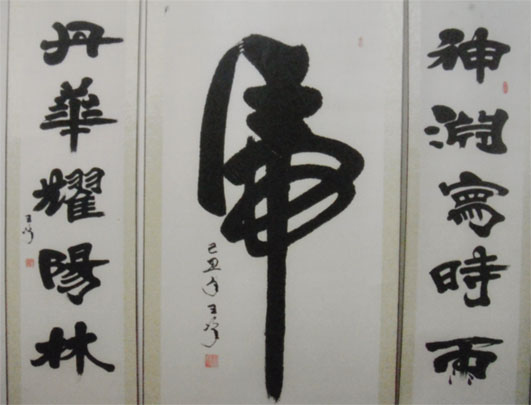 神淵寫時雨
虎
己丑年王
丹華耀陽林
王